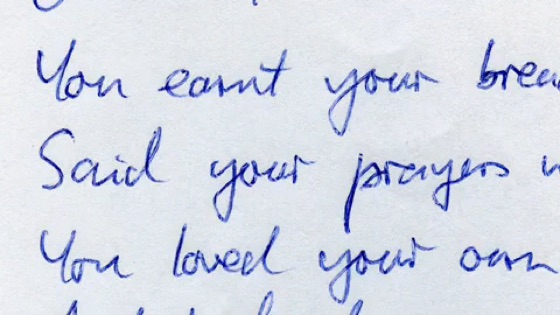 You earnt your brea
Said your prayers
You loved your own